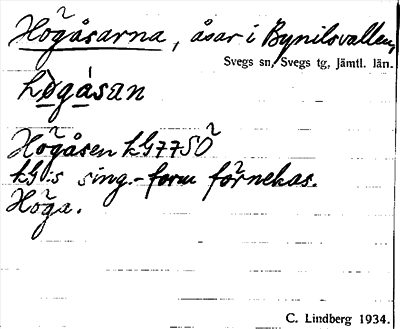 Högåsarna, åsar i Bynilsvallen,
Svegs sn, Svegs tg, Jämtl. län.
hø̀gásan
Högåsen kG 77 SO
kG:s sing.-form förnekas.
Höga.
C. Lindberg 1934.